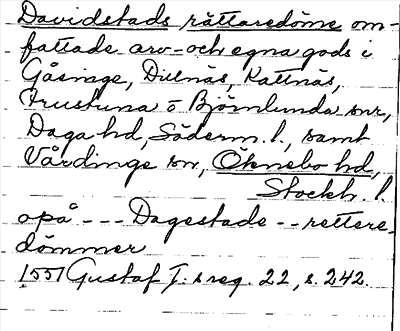 Davidstads rättaredöme om-
fattade arv- och egna gods i
Gåsinge, Dillnäs, Kattnäs,
Frustuna o Björnlunda snr,
Daga hd, Söderm. l., samt
Vårdinge sn, Öknebo hd,
Stockh. l.
opå --- Dagestade -- rettere-
dömmer
1551 Gustaf I:s reg. 22, s. 242.